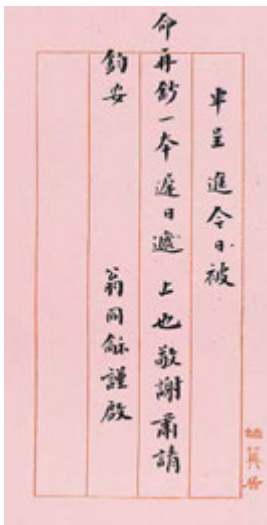 半呈進今日被
命再鈔一本遲日遞上也敬謝肅請
鈞安
翁同龢謹啟